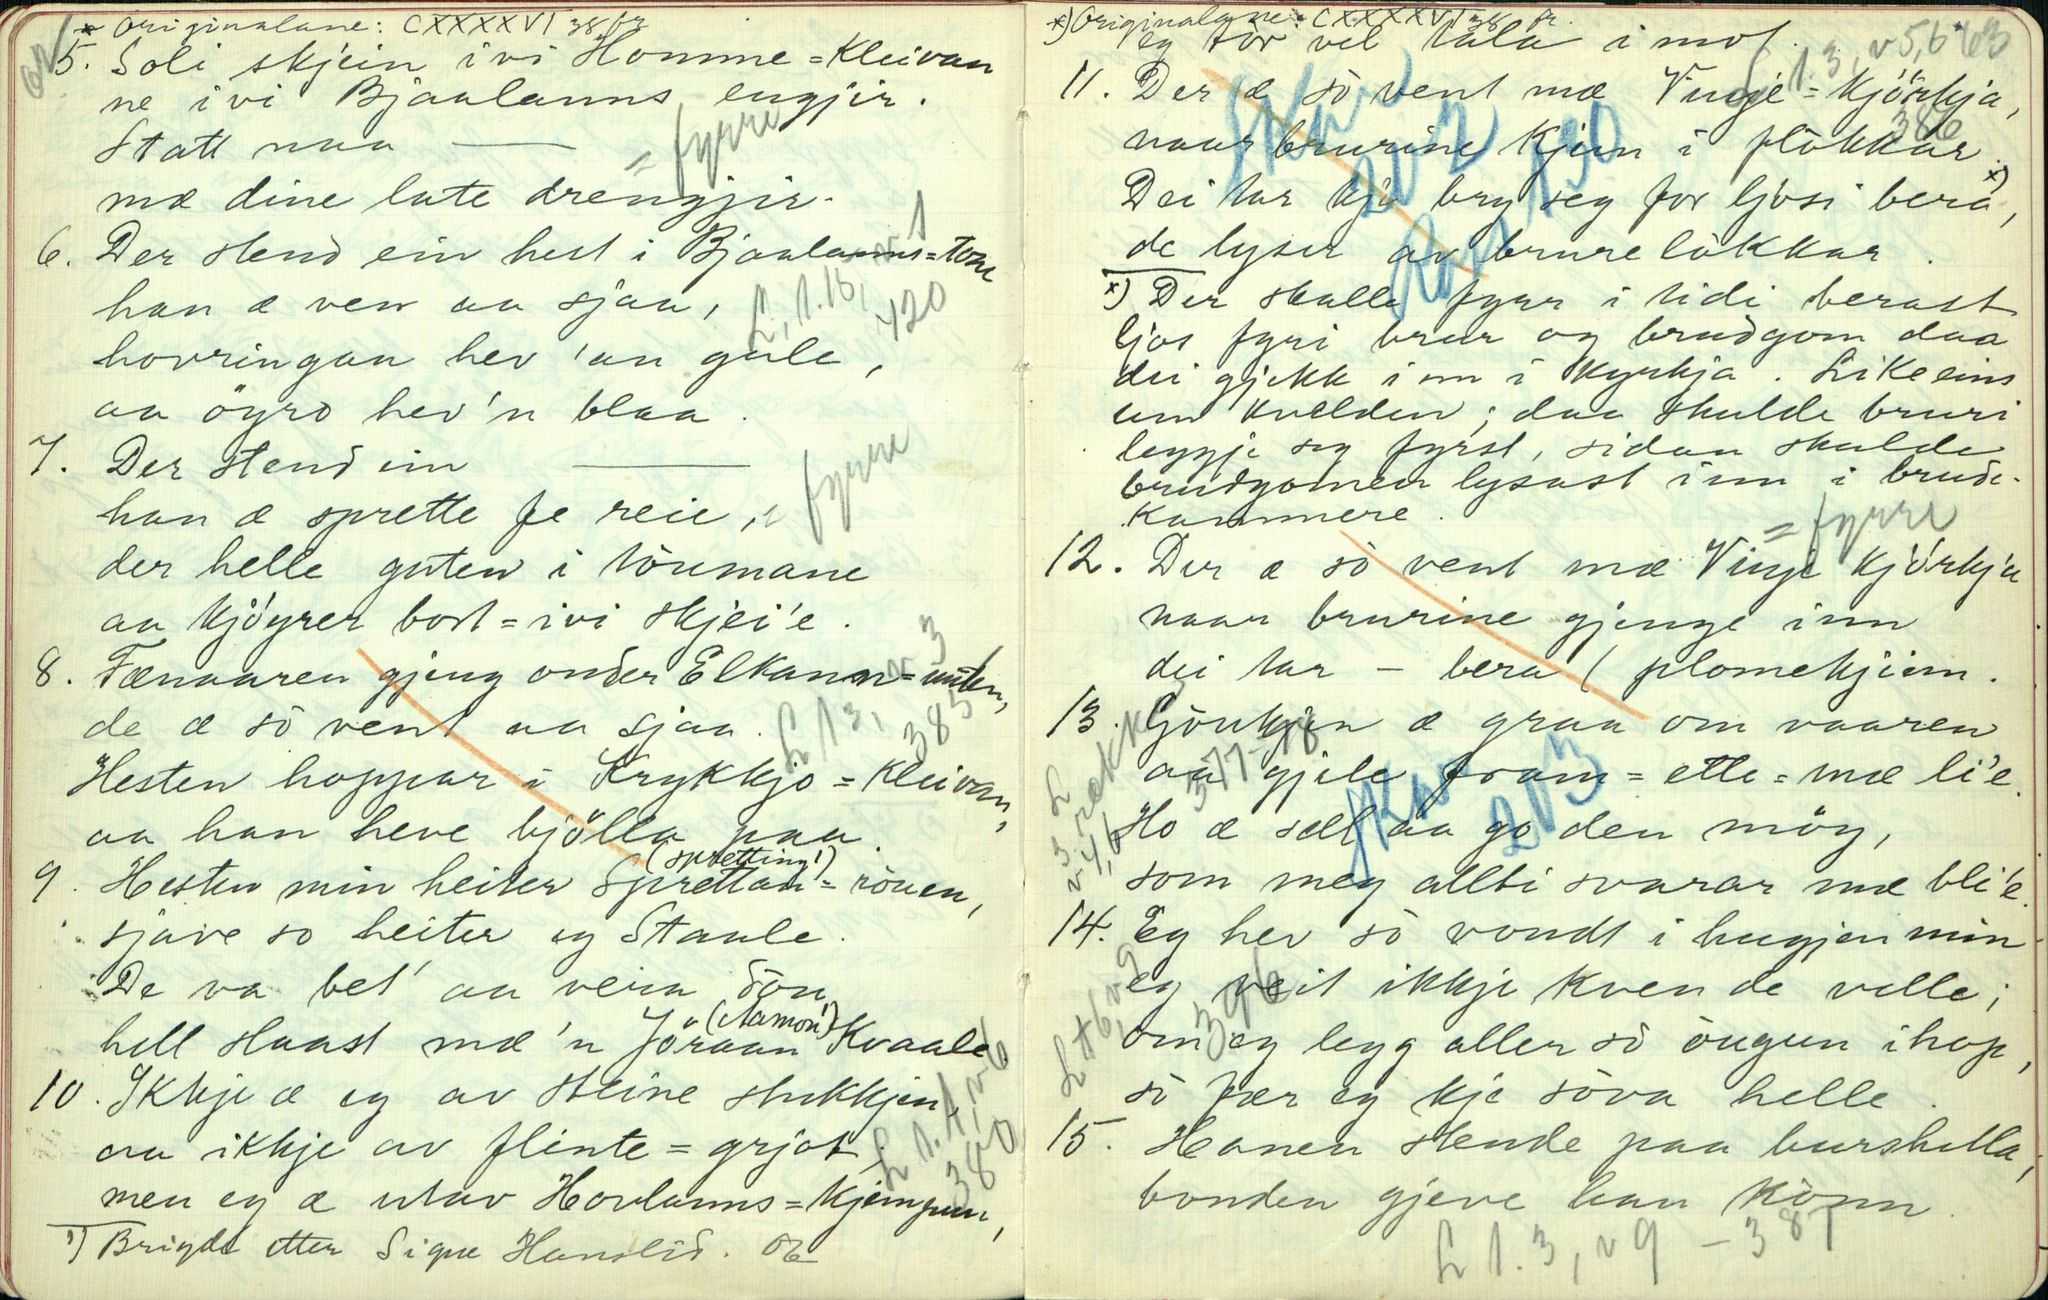 * Originalane: CXXXXVI 38 fr
5. Soli skjein ivi Homme=Kleivan
ne ivi Bjaalanns engjir.
Statt naa ———
= fyrre
mæ dine late drengjir.
6. Der stend ein hest i Bjaalanns=tone
han æ ven aa sjaa,
L, 1.16, v 1
420
hovringan hev 'an gule,
aa öygro hev'n blaa.
7. Der stend ein ———
= fyrre
han æ sprette fe reie,
der helle guten i tòumane
aa kjöyrer bort=ivi skjei'e.
8. Fænaaren gjeng onder Elkann=nuten,
de æ sò vent aa sjaa.
L 1 3, v 3
385
Hesten hoppar i Krykkjo=Kleivan,
aa han heve bjölla paa.
(spretting¹)
9. Hesten min heiter Sprettan=ròuen,
sjave so heiter eg Staale.
De va bet' aa vera dön
(Aamon¹)
hell staast mæ'n Jöraan Kvaale
10. Ikkje æ eg av steine stukkjen,
aa ikkje av flinte=grjot,
L 1.4, v 6
380
men eg æ utav Hovlanns=kjempun,
¹) Brigde etter Signe Hanslid. OE
*) Originalane: CXXXXVI 38 fr.
eg tòr vel tala i mot.
L 1.3, v 5,6 +63
386
11. Der æ sò vent mæ Vinje=kjörkja,
naar brurine kjem i flòkkar.
Dei tar kje bry seg for ljosi bera*),
de lyser av brurelòkkar.
Skv 202
*) Der skulle fyrr i tidi berast
ljos fyri brur og brudgom daa
dei gjekk inn i kyrkja. Likeeins
um kvelden; daa skulde bruri
leggje seg fyrst, sidan skulde
brudgomen lysast inn i brude-
kammere.
= fyrre
12. Der æ sò vent mæ Vinje kjörkja
naar brurine gjenge inn
dei tar — bera / plomekjinn.
13. Gòukjen æ graa om vaaren
aa gjele fram=ette=mæ li'e.
L 3 rekkje
v 4,6
377-78
Skv 203
Ho æ sæl aa go den möy,
som meg allti svarar mæ bli'e.
14. Eg hev sò vondt i hugjen min
eg veit ikkje kven de velle;
L 46, v 9
396
om eg legg aller sò òugun ihop,
sò fær eg kje sòva helle.
15. Hanen stende paa burshella,
bonden gjeve han kònn.
L 1.3, v 9 – 387